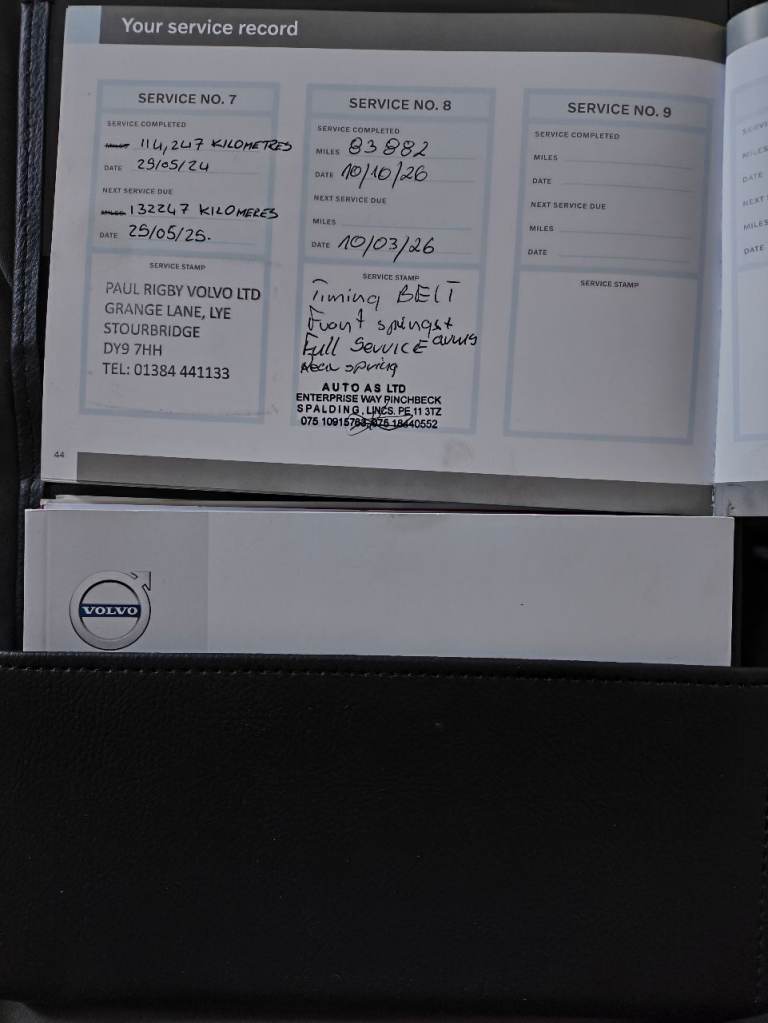 Your service record
SERVICE NO. 7
SERVICE COMPLETED
MILES 114,247 KILOMETRES
DATE 29/05/24
NEXT SERVICE DUE
MILES 132247 KILOMERES
DATE 25/05/25.
SERVICE STAMP
PAUL RIGBY VOLVO LTD
GRANGE LANE, LYE
STOURBRIDGE
DY9 7HH
TEL: 01384 441133
SERVICE NO. 8
SERVICE COMPLETED
MILES 83882
DATE 10/10/26
NEXT SERVICE DUE
MILES
DATE 10/03/26
SERVICE STAMP
Timing BELT
Front springs+
Full Service arms
spring
AUTO AS LTD
ENTERPRISE WAY PINCHBECK
SPALDING, LINCS. PE 11 3TZ
SERVICE NO. 9
SERVICE COMPLETED
MILES
DATE
NEXT SERVICE DUE
MILES
DATE
SERVICE STAMP
MILES
DATE
MILES
DATE
44
VOLVO